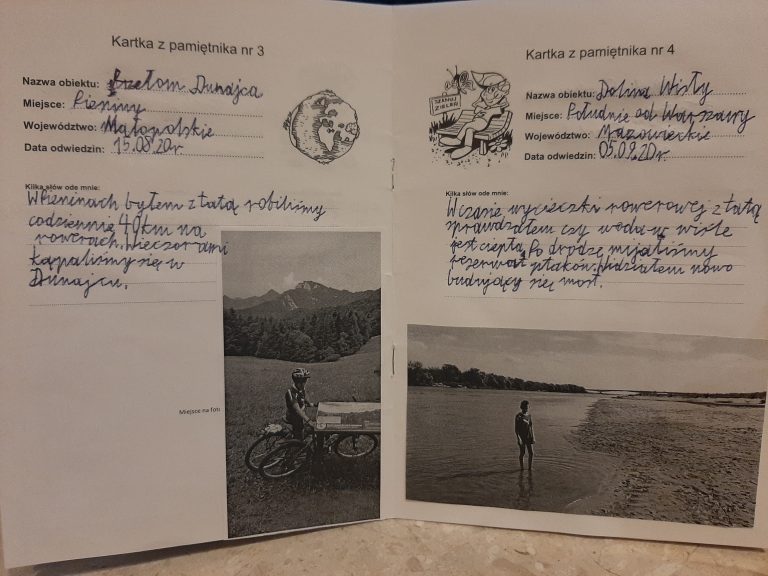 Kartka z pamiętnika nr 3
Nazwa obiektu: Przełom Dunajca
Miejsce: Pieniny
Województwo: Małopolskie
Data odwiedzin: 15.08.20r.
Kilka słów ode mnie:
W Pieninach byłem z tatą robiliśmy
codziennie 40km na
rowerach. Wieczorami
kąpaliśmy się w
Dunajcu.
Miejsce na foto
Kartka z pamiętnika nr 4
SZANUJ
ZIELEŃ
Nazwa obiektu: Dolina Wisły
Miejsce: Południe od Warszawy
Województwo: Mazowieckie
Data odwiedzin: 05.09.20r.
Kilka słów ode mnie:
W czasie wycieczki rowerowej z tatą
sprawdzałem czy woda w wiśle
jest ciepła. Po drodze mijaliśmy
rezerwat ptaków. Widziałem nowo
budujący się most.